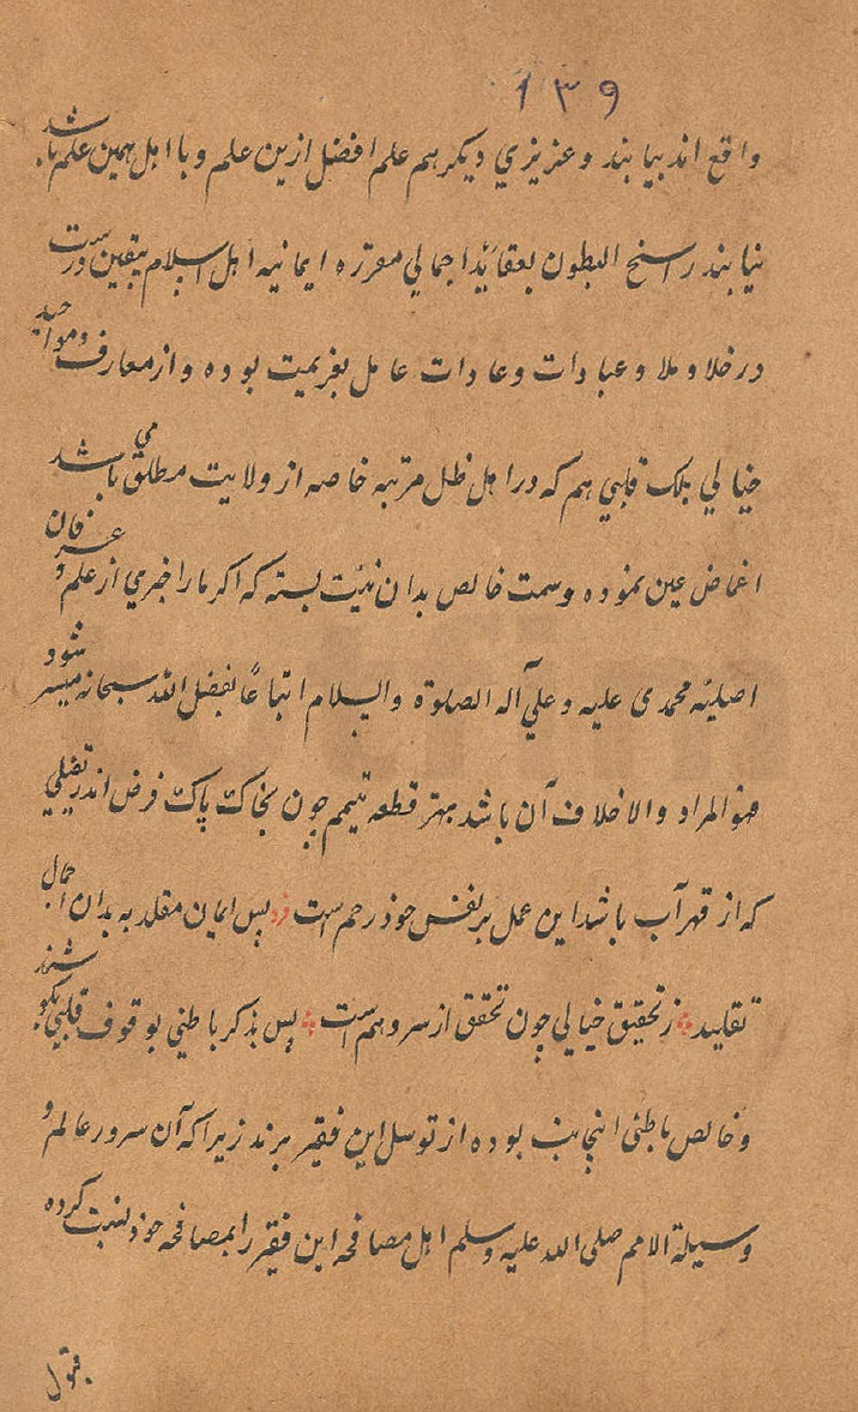 ١٣٩
واقع اند بیابند و عزیزي دیکر هم علم افضل ازین علم و با اهل همین علم باشد
نیابند راسخ البطون بعقائد اجمالي مقرره ایمانیه اهل اسلام بیقین درست
در خلا و ملا و عبادات و عادات عامل بعزیمیت بوده و از معارف و مواجید
خیالي بلک قلبي هم که در اهل ظل مرتبه خاصه از ولایت مطلق مي باشد
اغماض عین نموده و سمت خالص بدان نیت بسته که اکر ما را خبري از علم و عرفان
اصلیه محمدی علیه و علي آله الصلوة والسلام اتباعاً بفضل الله سبحانه میسر شود
فهو المراد والا خلاف آن باشد بهتر قطعه تیمم چون بخاک پاک فرض اندر
که از قهر آب باشد این عمل بر نفس خود رحم است فرد پس ایمان مقلد به بدان اجمال
تقلید ز تحقیق خیالي چون تحقق از سر و هم است پس بذکر باطني بوقوف قلبي بکوشند
و خالص باطنی اینجانب بوده از توسل این فقیر برند زیرا که آن سرور عالم و
وسیلة الامم صلی الله علیه وسلم اهل مصافحه این فقیر را بمصافحه خود نسبت کرده
قبول